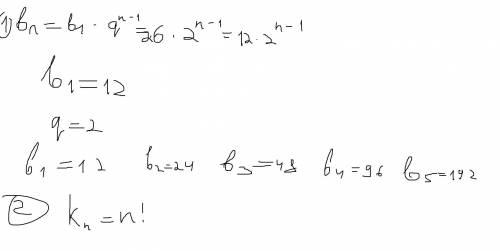 1) bn = b1 · q^n-1 = 26 · 2^n-1 = 12 · 2^n-1
b1 = 12
q = 2
b1 = 12 b2 = 24 b3 = 48 b4 = 96 b5 = 192
2) kn = n!